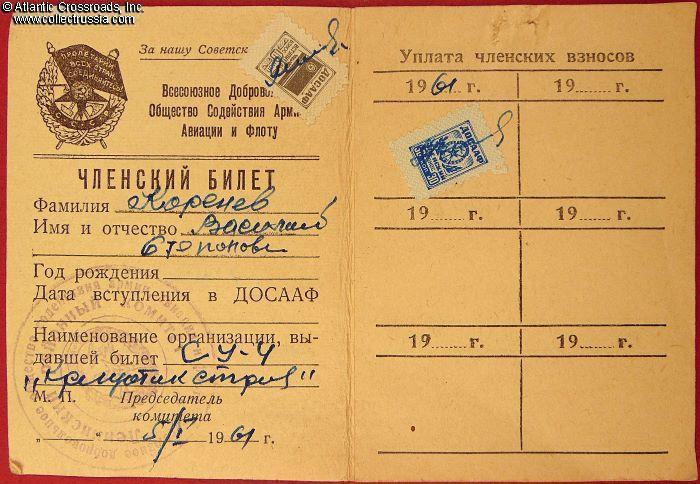 © Atlantic Crossroads, Inc.
www.collectrussia.com
За нашу Советск
ПРОЛЕТАРИИ
ВСЕХ СТРАН
СОЕДИНЯЙТЕСЬ
Всесоюзное Доброво
Общество Содействия Арми
Авиации и Флоту
ДОСААФ
ЧЛЕНСКИЙ БИЛЕТ
Фамилия Коренев
Имя и отчество Василий
Год рождения
Дата вступления в ДОСААФ
Наименование организации, вы-
давшей билет СУ-4
М. П. Председатель
комитета
„ “ 5/I 1961 г.
Уплата членских взносов
1961 г. 19 г.
ДОСААФ
19 г. 19 г.
19 г. 19 г.